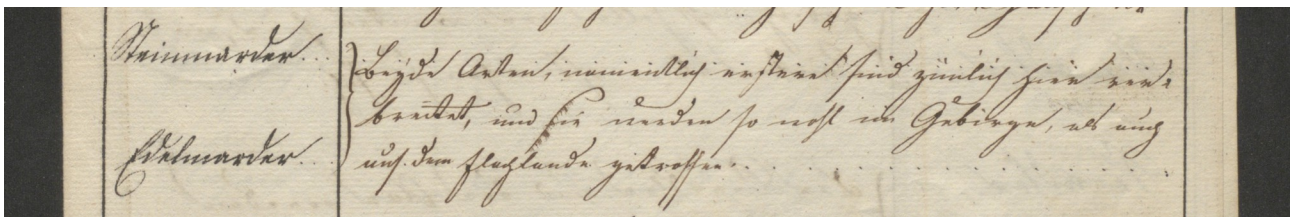 Steinmarder...
Beyde Arten, namentlich erstere sind zimlich hier ver-
breitet, und sie werden so wohl im Gebirge, als auch
Edelmarder...
auf dem Flachlande getroffen...........